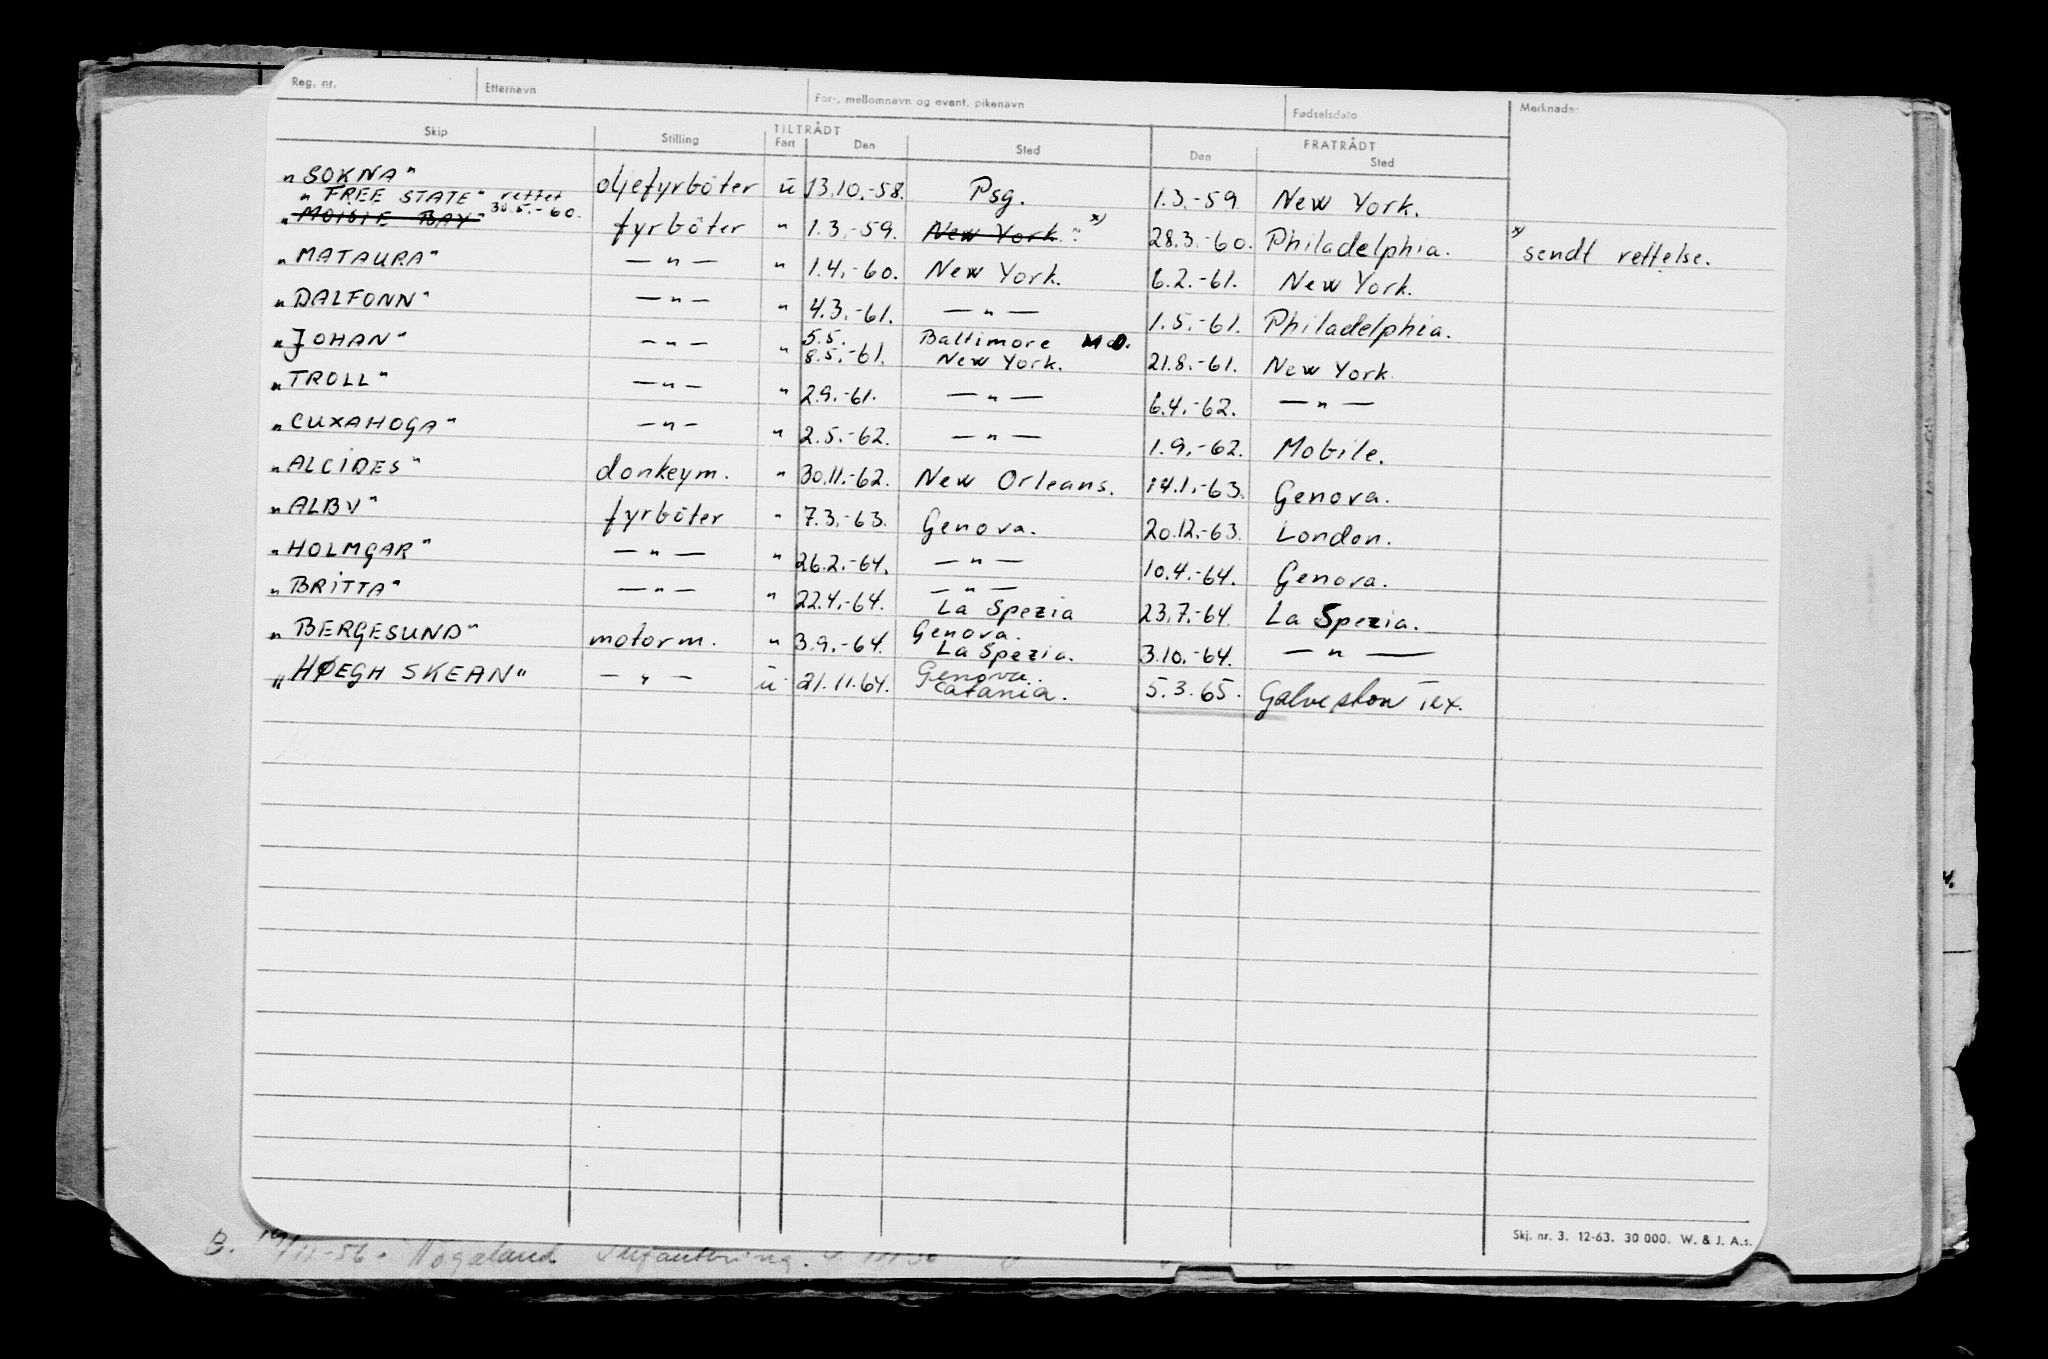 Reg. nr. Etternavn For-, mellomnavn og event. pikenavn Fødselsdato Merknader
Skip Stilling TILTRÅDT Fart Den Sted FRATRÅDT Den Sted
"SOKNA" oljefyrböter ū 13.10.-58. Psg. 1.3.-59 New York.
"FREE STATE" rettet 30.5.-60.
"MOISIE BAY" fyrböter " 1.3.-59. New York. x) 28.3.-60. Philadelphia. x) sendt rettelse.
"MATAURA" — " — " 1.4.-60. New York. 6.2.-61. New York.
"DALFONN" — " — " 4.3.-61. — " — 1.5.-61. Philadelphia.
"JOHAN" — " — " 5.5. Baltimore Md.
8.5.-61. New York. 21.8.-61. New York.
"TROLL" — " — " 2.9.-61. — " — 6.4.-62. — " —
"CUXAHOGA" — " — " 2.5.-62. — " — 1.9.-62. Mobile.
"ALCIDES" donkeym. " 30.11.-62. New Orleans. 14.1.-63. Genova.
"ALBY" fyrböter " 7.3.-63. Genova. 20.12.-63. London.
"HOLMGAR" — " — " 26.2.-64. — " — 10.4.-64. Genova.
"BRITTA" — " — " 22.4.-64. — " —
La Spezia 23.7.-64. La Spezia.
"BERGESUND" motorm. " 3.9.-64. Genova.
La Spezia. 3.10.-64. — " —
"HØEGH SKEAN" — " — ū 21.11.64. Genova.
Catania. 5.3.65. Galveston Tex.
Skj. nr. 3. 12-63. 30 000. W. & J. A.s.
B.